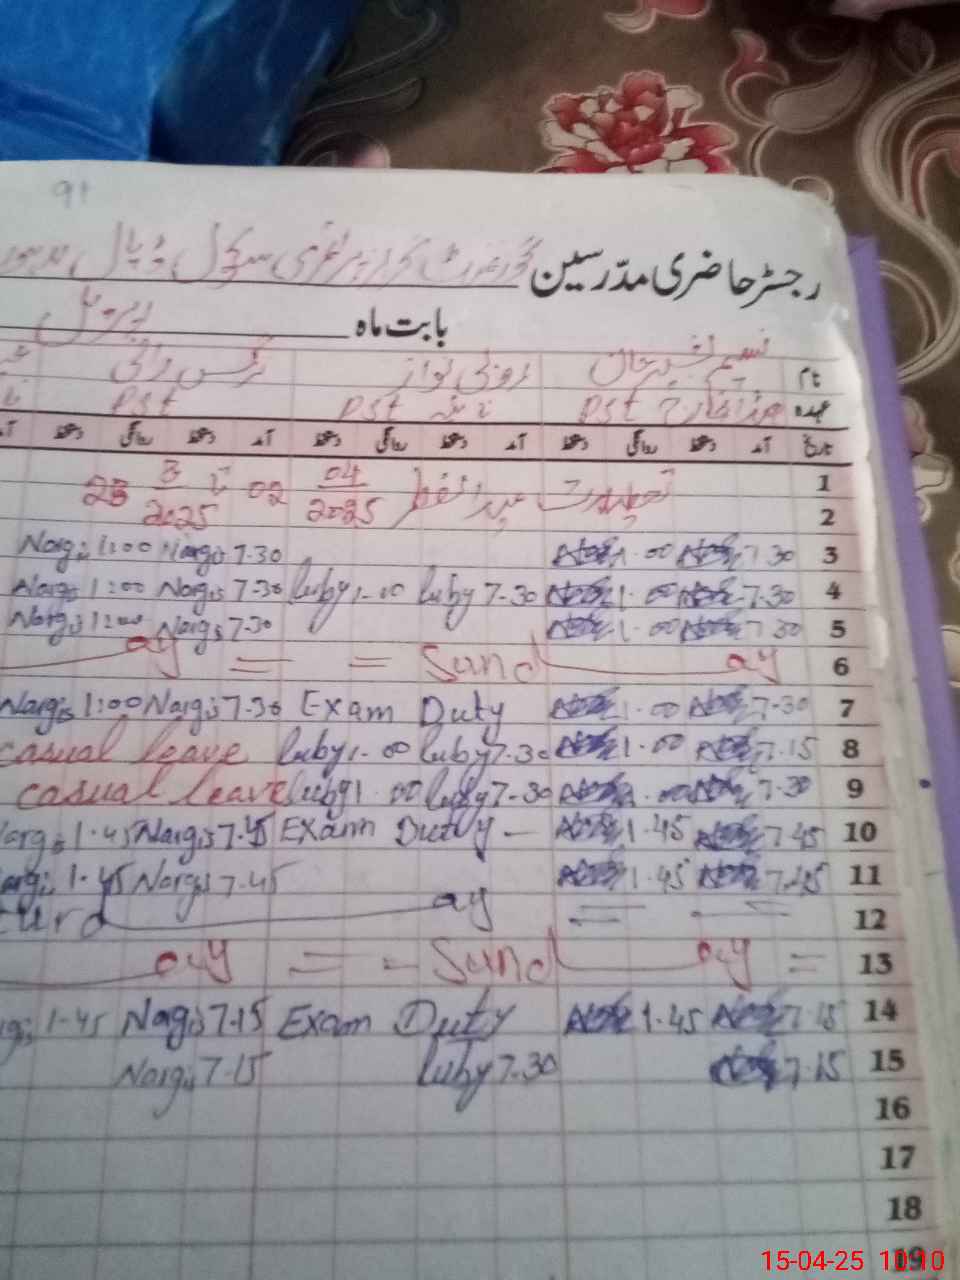 91
رجسٹر حاضری مدرسین گورنمنٹ گرلز پرائمری سکول
بابت ماہ اپریل
نام نسیم اختر خان روزی نواز نرگس رانی
عہدہ ہیڈ انچارج PST نائب PST PST
تاریخ آمد دستخط روانگی دستخط آمد دستخط روانگی دستخط آمد دستخط روانگی دستخط
1 تعطیلات عید الفطر 04/2025 02 تا 3/2025 28
2
3 7.30 1.00 Nargis 7.30 Nargis 1:00
4 7.30 1.00 luby 7.30 luby 1.00 Nargis 7.30 Nargis 1:00
5 7.30 1.00 Nargis 7.30 Nargis 1:00
ay = = Sund ay 6
7 7.30 1.00 Exam Duty Nargis 7.30 Nargis 1:00
8 7.15 1.00 luby 7.30 luby 1.00 casual leave
9 7.30 luby 7.30 luby 1.00 casual leave
10 7.45 1.45 Exam Duty Nargis 7.45 Nargis 1.45
11 7.45 1.45 Nargis 7.45 Nargis 1.45
turd ay = = 12
ay = - Sund ay = 13
14 7.15 1.45 Exam Duty Nargis 7.15 1.45
15 7.15 luby 7.30 Nargis 7.15
16
17
18
19
15-04-25 10:10